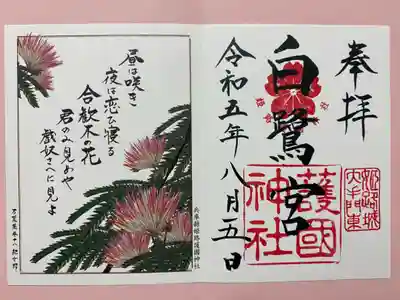 奉拝
姫路城
大手門東
白鷺宮
護國
神社
令和五年八月五日
昼は咲き
夜は恋ひ寝る
合歓木の花
君のみ見めや
戯奴さへに見よ
兵庫縣姫路護國神社